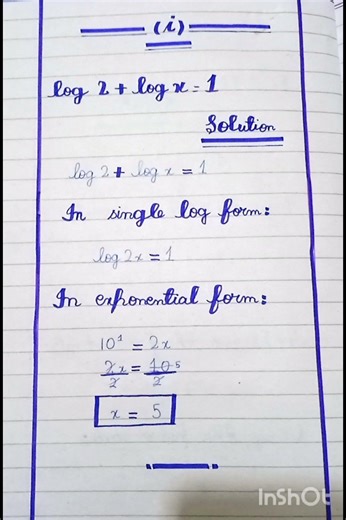 (i)
log 2 + log x = 1
Solution
log 2 + log x = 1
In single log form:
log 2x = 1
In exponential form:
10¹ = 2x
2x/2 = 10 5/2
x = 5
InShOt